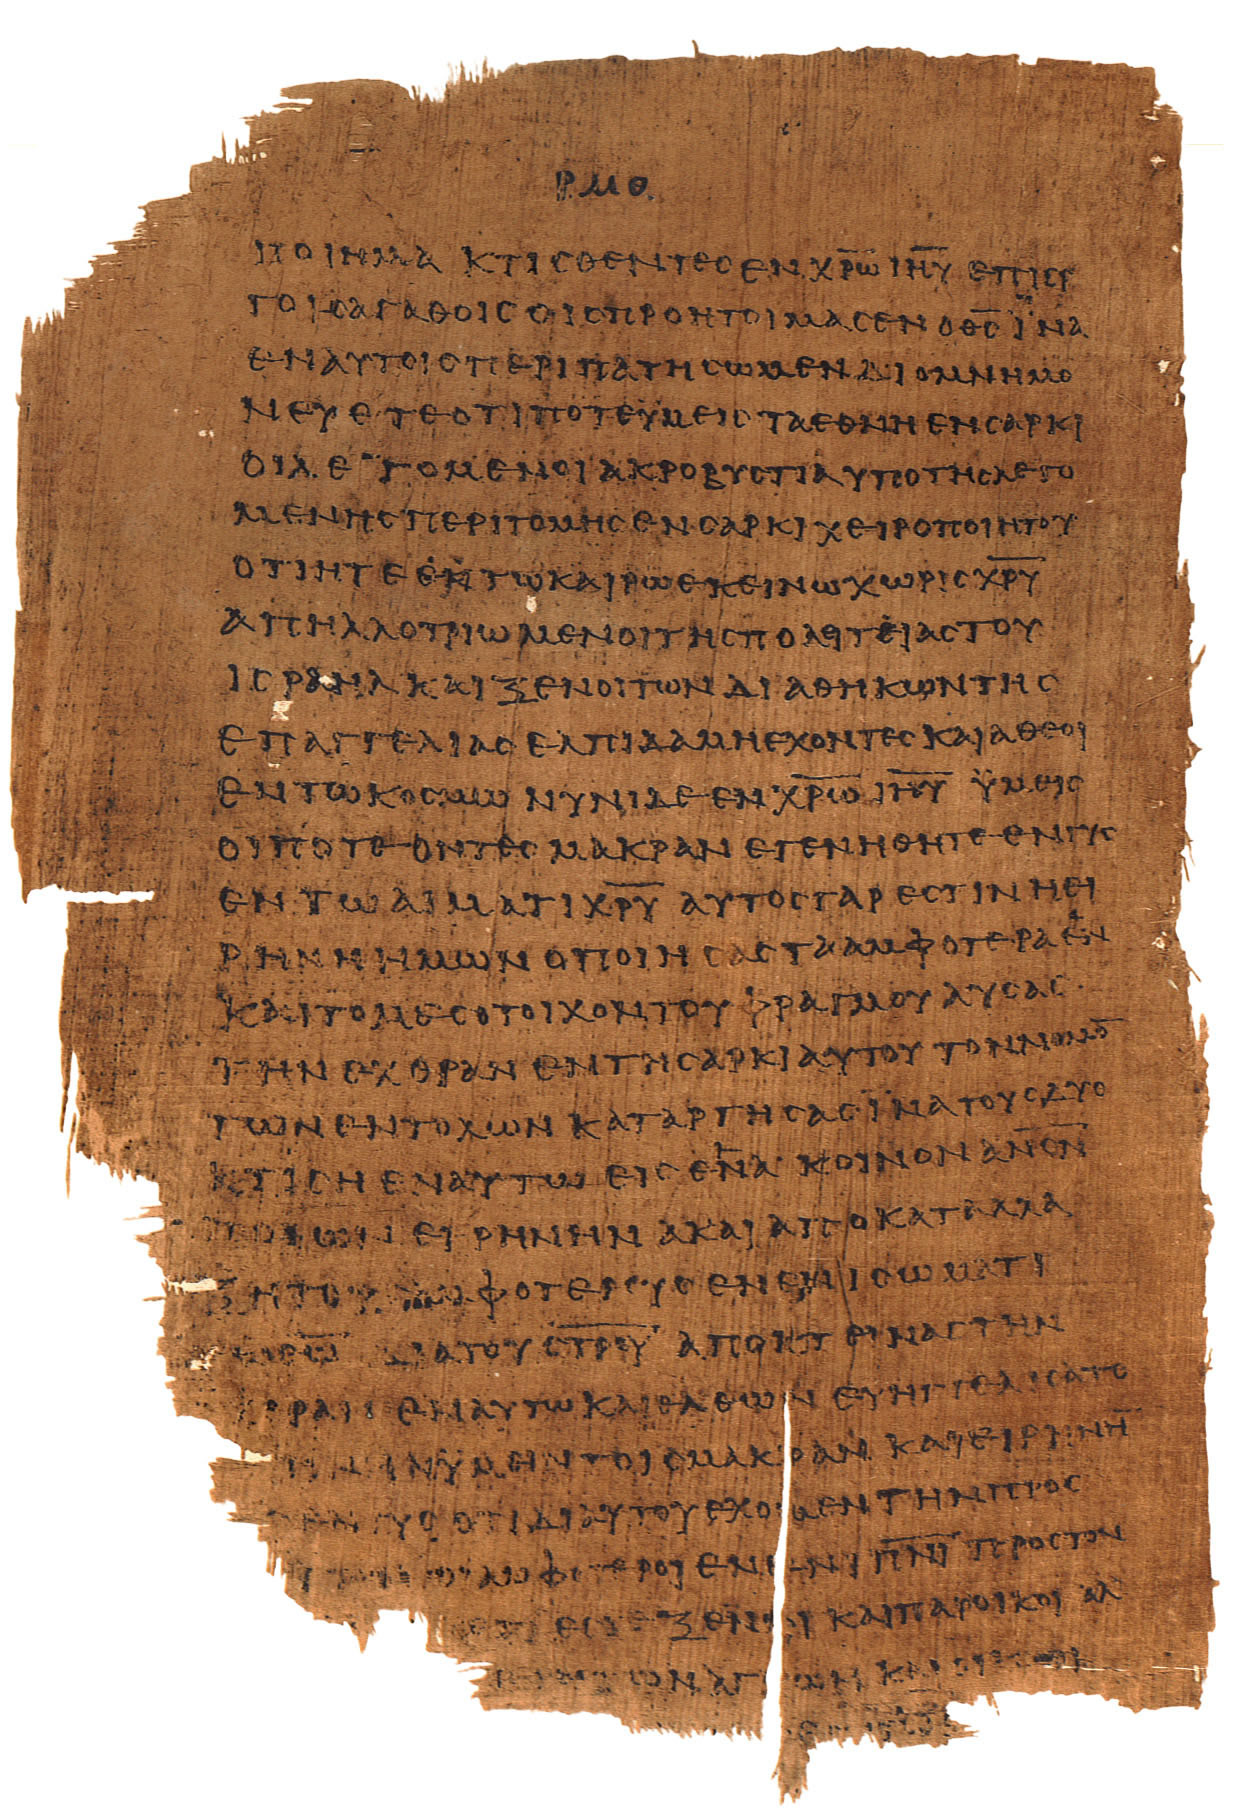 ΡΜΘ
ΠΟΙΗΜΑ ΚΤΙΣΘΕΝΤΕΣ ΕΝ ΧΡ̅Ω̅ ΙΗ̅Υ̅ ΕΠΙ ΕΡ
ΓΟΙΣ ΑΓΑΘΟΙΣ ΟΙΣ ΠΡΟΗΤΟΙΜΑΣΕΝ Ο ΘΣ̅ ΪΝΑ
ΕΝ ΑΥΤΟΙΣ ΠΕΡΙΠΑΤΗΣΩΜΕΝ ΔΙΟ ΜΝΗΜΟ
ΝΕΥΕΤΕ ΟΤΙ ΠΟΤΕ ΫΜΕΙΣ ΤΑ ΕΘΝΗ ΕΝ ΣΑΡΚΙ
ΟΙ ΛΕΓΟΜΕΝΟΙ ΑΚΡΟΒΥΣΤΙΑ ΥΠΟ ΤΗΣ ΛΕΓΟ
ΜΕΝΗΣ ΠΕΡΙΤΟΜΗΣ ΕΝ ΣΑΡΚΙ ΧΕΙΡΟΠΟΙΗΤΟΥ
ΟΤΙ ΗΤΕ ΕΝ ΤΩ ΚΑΙΡΩ ΕΚΕΙΝΩ ΧΩΡΙΣ ΧΡ̅Υ̅
ΑΠΗΛΛΟΤΡΙΩΜΕΝΟΙ ΤΗΣ ΠΟΛΙΤΕΙΑΣ ΤΟΥ
ΙΣΡΑΗΛ ΚΑΙ ΞΕΝΟΙ ΤΩΝ ΔΙΑΘΗΚΩΝ ΤΗΣ
ΕΠΑΓΓΕΛΙΑΣ ΕΛΠΙΔΑ ΜΗ ΕΧΟΝΤΕΣ ΚΑΙ ΑΘΕΟΙ
ΕΝ ΤΩ ΚΟΣΜΩ ΝΥΝΙ ΔΕ ΕΝ ΧΡ̅Ω̅ ΙΗ̅Υ̅ ΫΜΕΙΣ
ΟΙ ΠΟΤΕ ΟΝΤΕΣ ΜΑΚΡΑΝ ΕΓΕΝΗΘΗΤΕ ΕΝΓΥΣ
ΕΝ ΤΩ ΑΙΜΑΤΙ ΧΡ̅Υ̅ ΑΥΤΟΣ ΓΑΡ ΕΣΤΙΝ Η ΕΙ
ΡΗΝΗ ΗΜΩΝ Ο ΠΟΙΗΣΑΣ ΤΑ ΑΜΦΟΤΕΡΑ ΕΝ
ΚΑΙ ΤΟ ΜΕΣΟΤΟΙΧΟΝ ΤΟΥ ΦΡΑΓΜΟΥ ΛΥΣΑΣ
ΤΗΝ ΕΧΘΡΑΝ ΕΝ ΤΗ ΣΑΡΚΙ ΑΥΤΟΥ ΤΟΝ ΝΟΜΟ̅
ΤΩΝ ΕΝΤΟΛΩΝ ΚΑΤΑΡΓΗΣΑΣ ΪΝΑ ΤΟΥΣ ΔΥΟ
ΚΤΙΣΗ ΕΝ ΑΥΤΩ ΕΙΣ ΕΝΑ ΚΟΙΝΟΝ ΑΝ̅ΟΝ̅
ΠΟΙΩΝ ΕΙΡΗΝΗΝ ΑΚΑΙ ΑΠΟΚΑΤΑΛΛΑ
ΞΗ ΤΟΥΣ ΑΜΦΟΤΕΡΟΥΣ ΕΝ ΕΝΙ ΣΩΜΑΤΙ
ΔΙΑ ΤΟΥ ΣΤΡ̅Ο̅Υ̅ ΑΠΟΚΤΙΝΑΣ ΤΗΝ
ΕΝ ΑΥΤΩ ΚΑΙ ΕΛΘΩΝ ΕΥΗΓΓΕΛΙΣΑΤΟ
ΫΜΕΙΝ ΤΟΙΣ ΜΑΚΡΑΝ ΚΑΙ ΕΙΡΗΝΗ̅
ΟΤΙ ΔΙ ΑΥΤΟΥ ΕΧΟΜΕΝ ΤΗΝ ΠΡΟΣ
ΑΜΦΟΤΕΡΟΙ ΕΝ ΕΝΙ ΠΝ̅Ι̅ ΠΡΟΣ ΤΟΝ
ΕΣΤΕ ΞΕΝΟΙ ΚΑΙ ΠΑΡΟΙΚΟΙ ΑΛ
ΤΩΝ ΑΓΙΩΝ ΚΑΙ